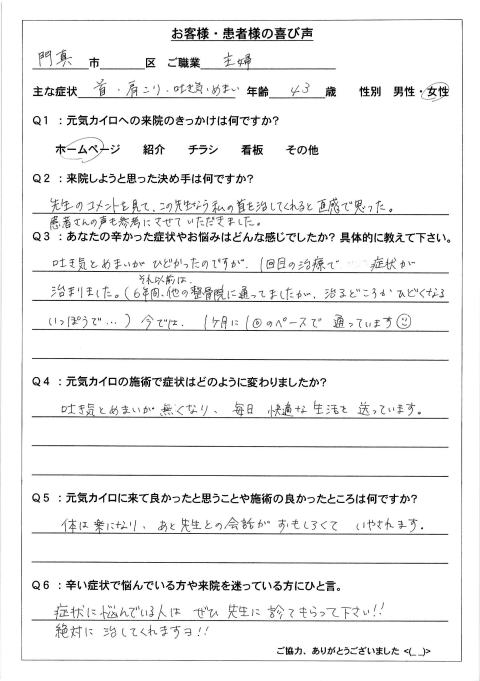 お客様・患者様の喜び声
門真 市 区 ご職業 主婦
主な症状 首・肩こり・吐き気・めまい 年齢 43 歳 性別 男性・女性
Q1 :元気カイロへの来院のきっかけは何ですか?
ホームページ 紹介 チラシ 看板 その他
Q2 :来院しようと思った決め手は何ですか?
先生のコメントを見て、この先生なら私の首を治してくれると直感で思った。
患者さんの声も参考にさせていただきました。
Q3 :あなたの辛かった症状やお悩みはどんな感じでしたか? 具体的に教えて下さい。
吐き気とめまいがひどかったのですが、1回目の治療で… 症状が
それ以前は、
治まりました。(6年間、他の整骨院に通ってましたが、治るどころかひどくなる
いっぽうで…) 今では、1ヶ月に1回のペースで 通っています
Q4 :元気カイロの施術で症状はどのように変わりましたか?
吐き気とめまいが無くなり、毎日 快適な生活を 送っています。
Q5 :元気カイロに来て良かったと思うことや施術の良かったところは何ですか?
体は楽になり、あと先生との会話が おもしろくて いやされます。
Q6 :辛い症状で悩んでいる方や来院を迷っている方にひと言。
症状に悩んでいる人は ぜひ 先生に 診てもらって下さい!!
絶対に 治してくれますヨ!!
ご協力、ありがとうございました <(_ _)>